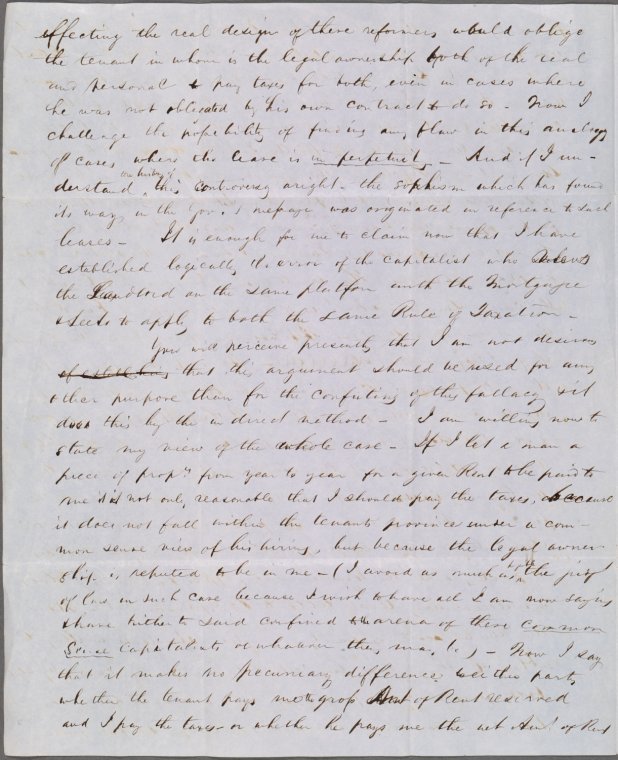 effecting the real design of these reformers would oblige
the tenant in whom is the legal ownership both of the real
and personal to pay taxes for both, even in cases where
he was not obligated by his own contract to do so - Now I
challenge the possibility of finding any flaw in this analogy
of cases where the lease is in perpetuity - And if I un-
the history of
derstand this controversy aright - the sophism which has found
its way in the Gov.'s message was originated in reference to such
leases - It is enough for me to claim now that I have
established logically the error of the capitalist who
the Landlord on the same platform with the Mortgagee
& seeks to apply to both the same Rule of Taxation -
You will perceive presently that I am not desirous
that this argument should be used for any
other purpose than for the confuting of this fallacy & it
does this by the indirect method - I am willing now to
state my view of the whole case - If I let a man a
piece of prop.y from year to year for a given Rent to be paid to
me it is not only reasonable that I should pay the taxes, because
it does not fall within the tenants province under a com-
mon sense view of his hiring, but because the legal owner-
ship is reputed to be in me - (I avoid as much as the
of law in such case because I wish to have all I am now saying
& have hitherto said confined to the arena of these common
Sense Capitalists or whatever they may be) - Now I say
that it makes no pecuniary difference to either party
whether the tenant pays me the gross Amt of Rent reserved
and I pay the taxes - or whether he pays me the net Amt of Rent